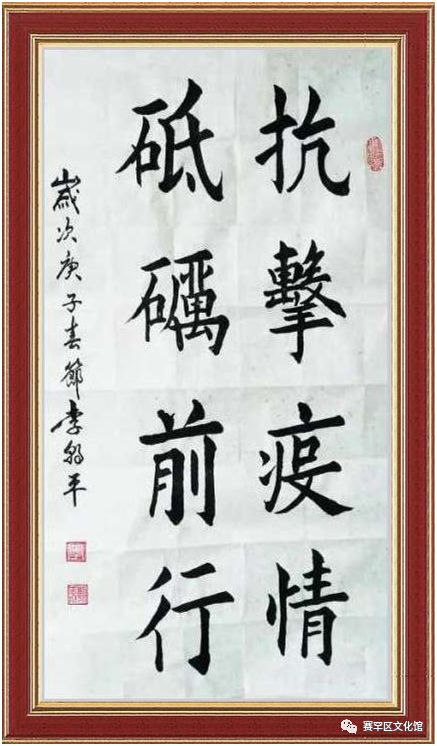 抗擊疫情
砥礪前行
歲次庚子春節李
平
赛罕区文化馆